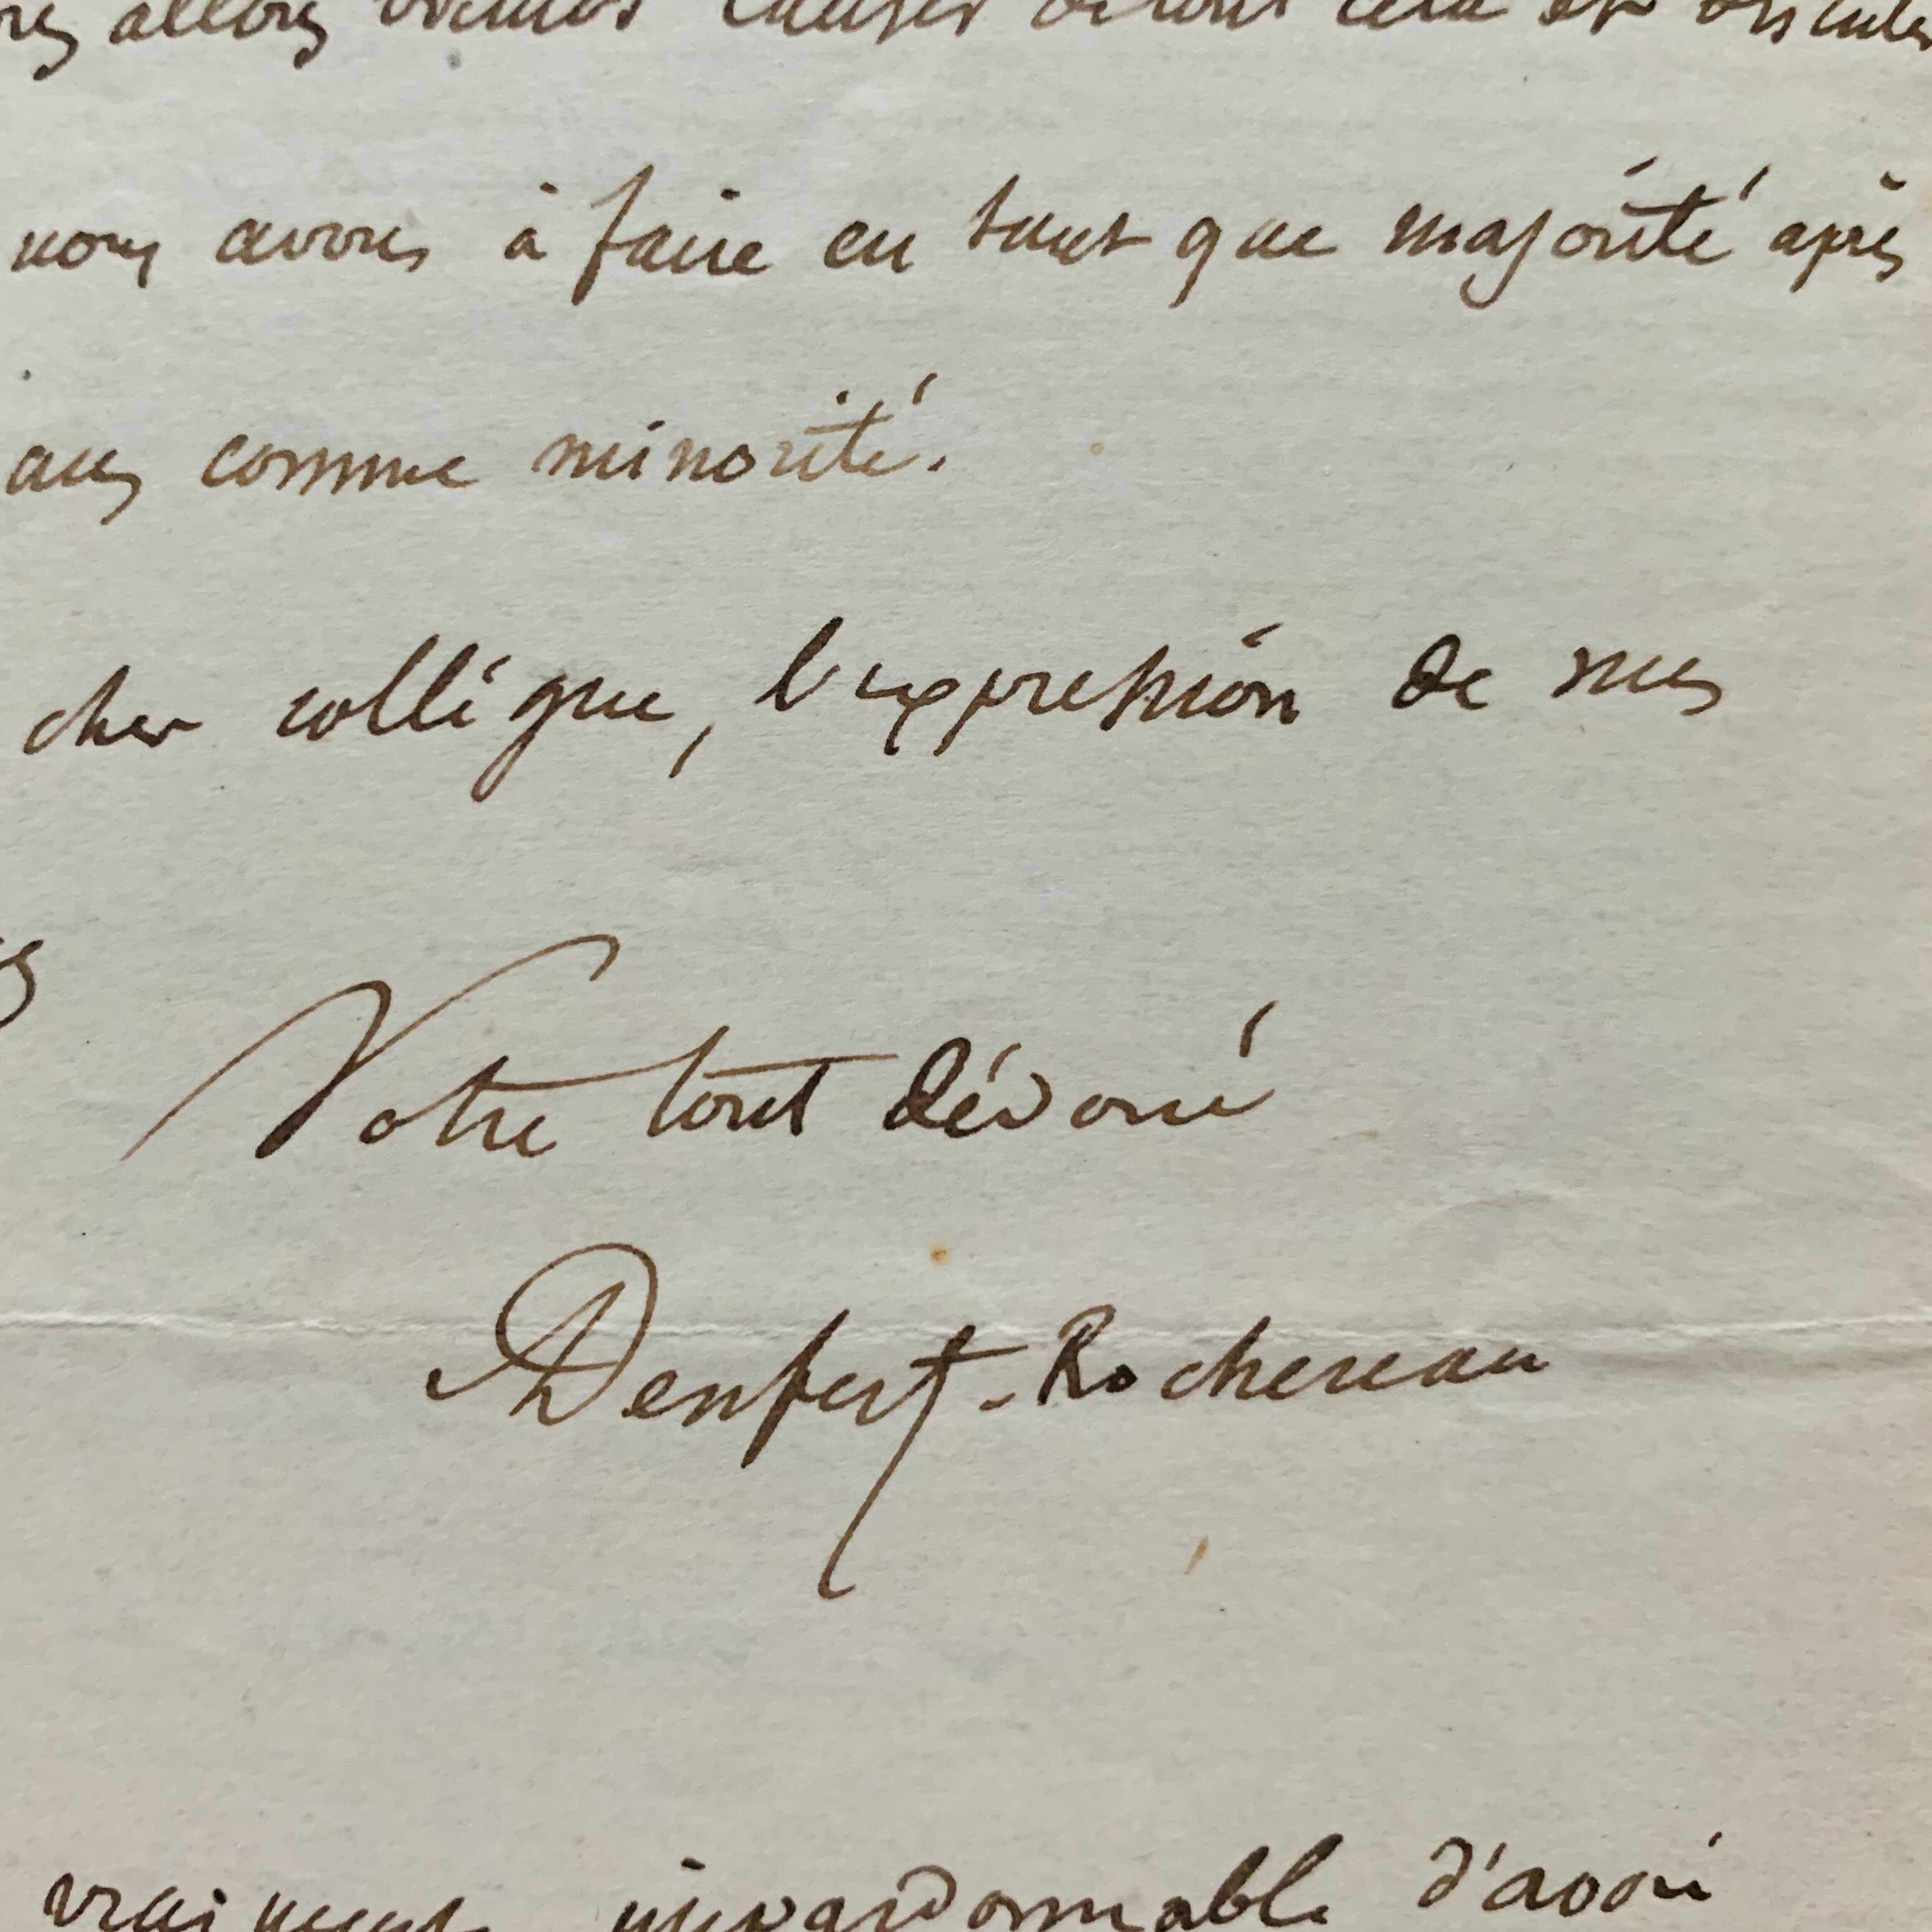 allons causer de tout cela et
nous avons à faire en tant que majorité après
ans comme minorité.
cher collègue, l'expression de mes
Votre tout dévoué
ADenfert-Rochereau
vraiment impardonnable d'avoir